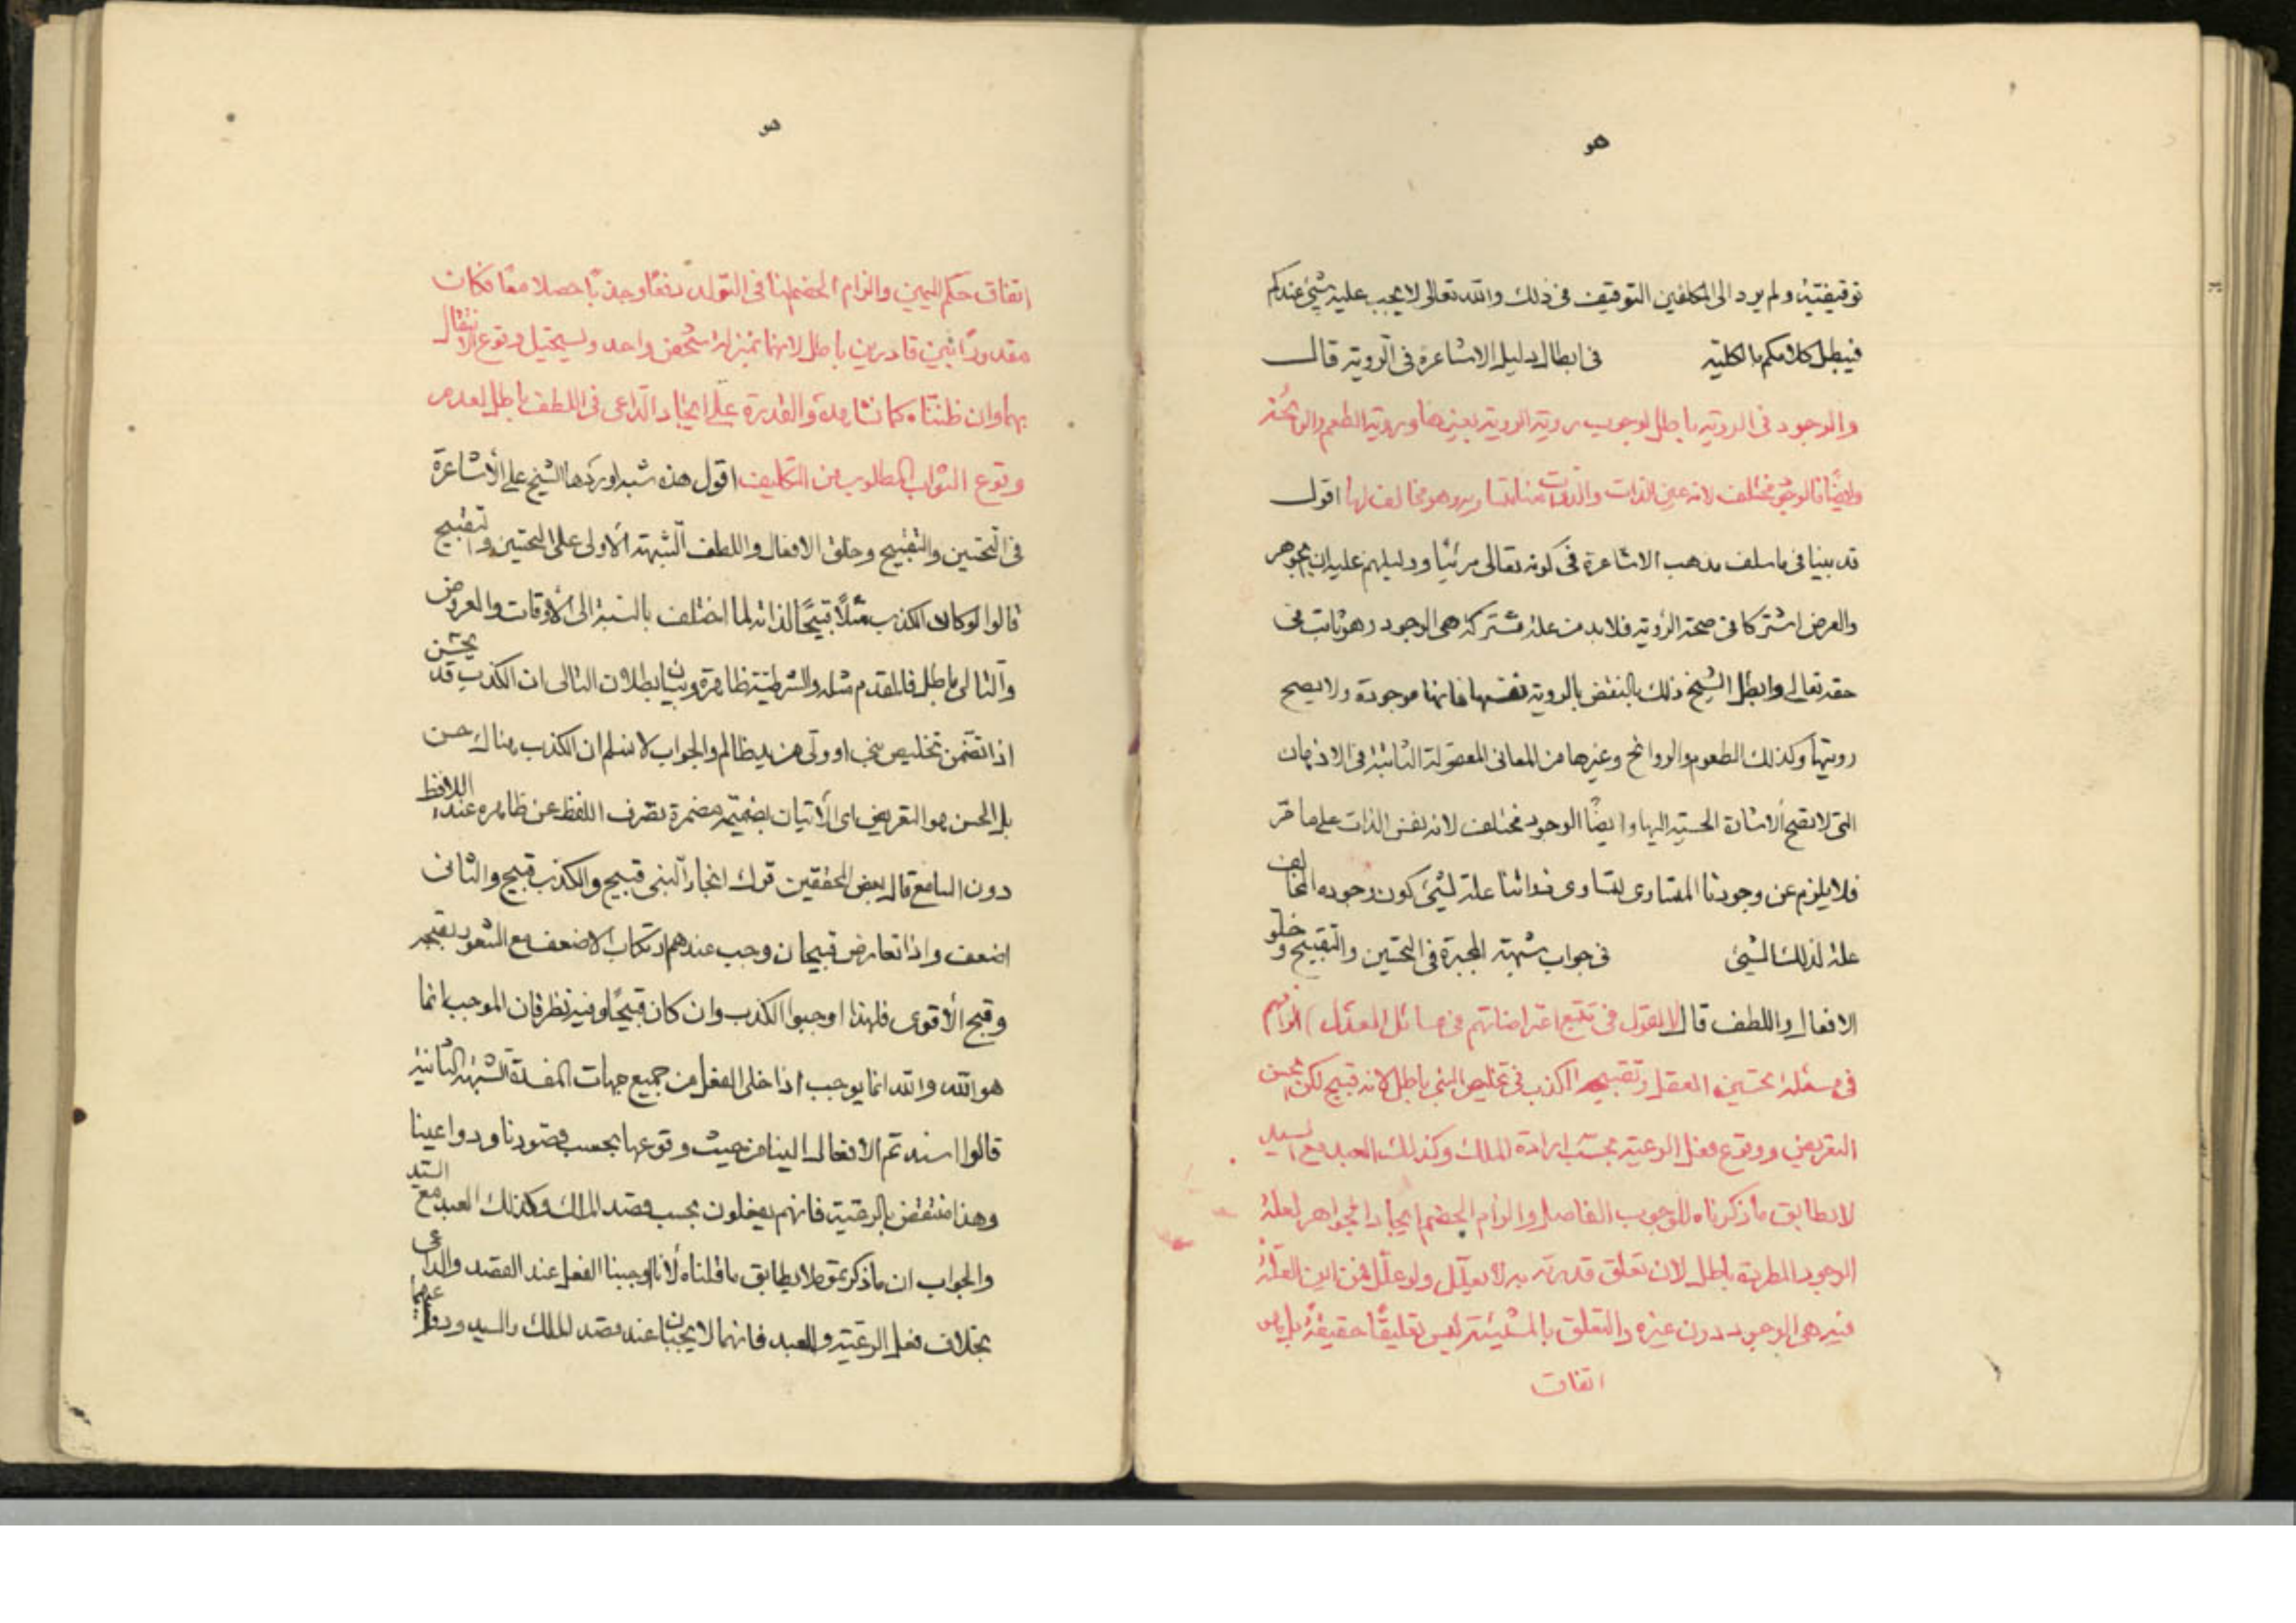 هو
توقيفتيه ولم يرد الى المكلفين التوقيف فى ذلك والله تعالى لا يجب عليه شئ عندكم
فيبطل كلامكم بالكلية فى ابطال دليل الاشاعرة فى الروية قال
والوجود فى الروية باطل لوجوب روية الروية بعينها وروية الطعم والرائحة
وايضًا فالوجود مختلف لانه عين الذات والذات وهو مخالف لها اقول
قد بينا فى ما سلف مذهب الاشاعرة فى كونه تعالى مرئيا ودليلهم عليه ان الجوهر
والعرض اشتركا فى صحة الرؤية فلابد من علة مشتركة هى الوجود وهو ثابت فى
حقه تعالى وابطل الشيخ ذلك بالنقض بالروية نفسها فانها موجودة ولا يصح
رويتها وكذلك الطعوم والروائح وغيرها من المعانى المعقولة الثابتة فى الاذهان
التى لا تصح الاشارة الحسية اليها وايضًا الوجود مختلف لانه نفس الذات على ما مر
فلا يلزم من وجودنا المساوى لذواتنا علة لشئ كون وجوده المخالف
علة لذلك الشئ فى جواب شبهة المجبرة فى التحسين والتقبيح وخلق
الافعال واللطف قال القول فى تتبع اعتراضاتهم فى مسائل العدل الزامهم
فى مسئلة تحسين العقل وتقبيحه الكذب فى تخليص النبى باطل لانه قبيح لكن يحسن
التعريض ووقوع فعل الرعية بحسب ارادة الملك وكذلك العبد مع السيد
لا يطابق ما ذكرناه للوجوب الفاصل والزام الخصم ايجاد الجواهر لعلة
الوجود المطردة باطل لان تعلق قدرته به لا يعلل ولو علل فمن اين العلة
فيه هى الوجود دون غيره والتعلق بالمشيئة ليس تعليقًا حقيقة بل
اتفاق
هو
اتفاق حكم اليمين والزام الخصم لنا فى التولد دفعًا وجذبًا حصلا معًا فكان
مقدورًا بين قادرين باطل لانهما بمنزلة شخص واحد ويستحيل وقوع الانتقال
بهما وان ظنناه كما نشاهده والقدرة على ايجاد الداعى فى اللطف باطل لعدم
وقوع الثواب المطلوب من التكليف اقول هذه شبه اوردها الشيخ على الأشاعرة
فى التحسين والتقبيح وخلق الافعال واللطف الشبهة الأولى على التحسين والتقبيح
قالوا لو كان الكذب مثلًا قبيحًا لذاته لما اختلف بالنسبة الى الأوقات والعروض
والتالى باطل فالمقدم مثله والشرطية ظاهرة وبيان بطلان التالى ان الكذب قد يحسن
اذا تضمن تخليص نبى او ولى من يد ظالم والجواب لا نسلم ان الكذب هناك حسن
بل الحسن هو التعريض اى الأتيان بضميمة مضمرة تصرف اللفظ عن ظاهره عند اللافظ
دون السامع قال بعض المحققين ترك انجاء النبى قبيح والكذب قبيح والثانى
اضعف واذا تعارض قبيحان وجب عندهم ارتكاب الاضعف مع الشعور بقبحه
وقبح الأقوى فلهذا اوجبوا الكذب وان كان قبيحًا وفيه نظر فان الموجب انما
هو الله والله انما يوجب اذا خلى الفعل من جميع جهات المفسدة الشبهة الثانية
قالوا اسندتم الافعال الينا من حيث وقوعها بحسب قصودنا ودواعينا
وهذا منتقض بالرعية فانهم يفعلون بحسب قصد الملك وكذلك العبد مع السيد
والجواب ان ما ذكرتموه لا يطابق ما قلناه لأنا اوجبنا الفعل عند القصد والداعى
بخلاف فعل الرعية والعبد فانهما لا يجبان عند قصد الملك والسيد ودواعيهما